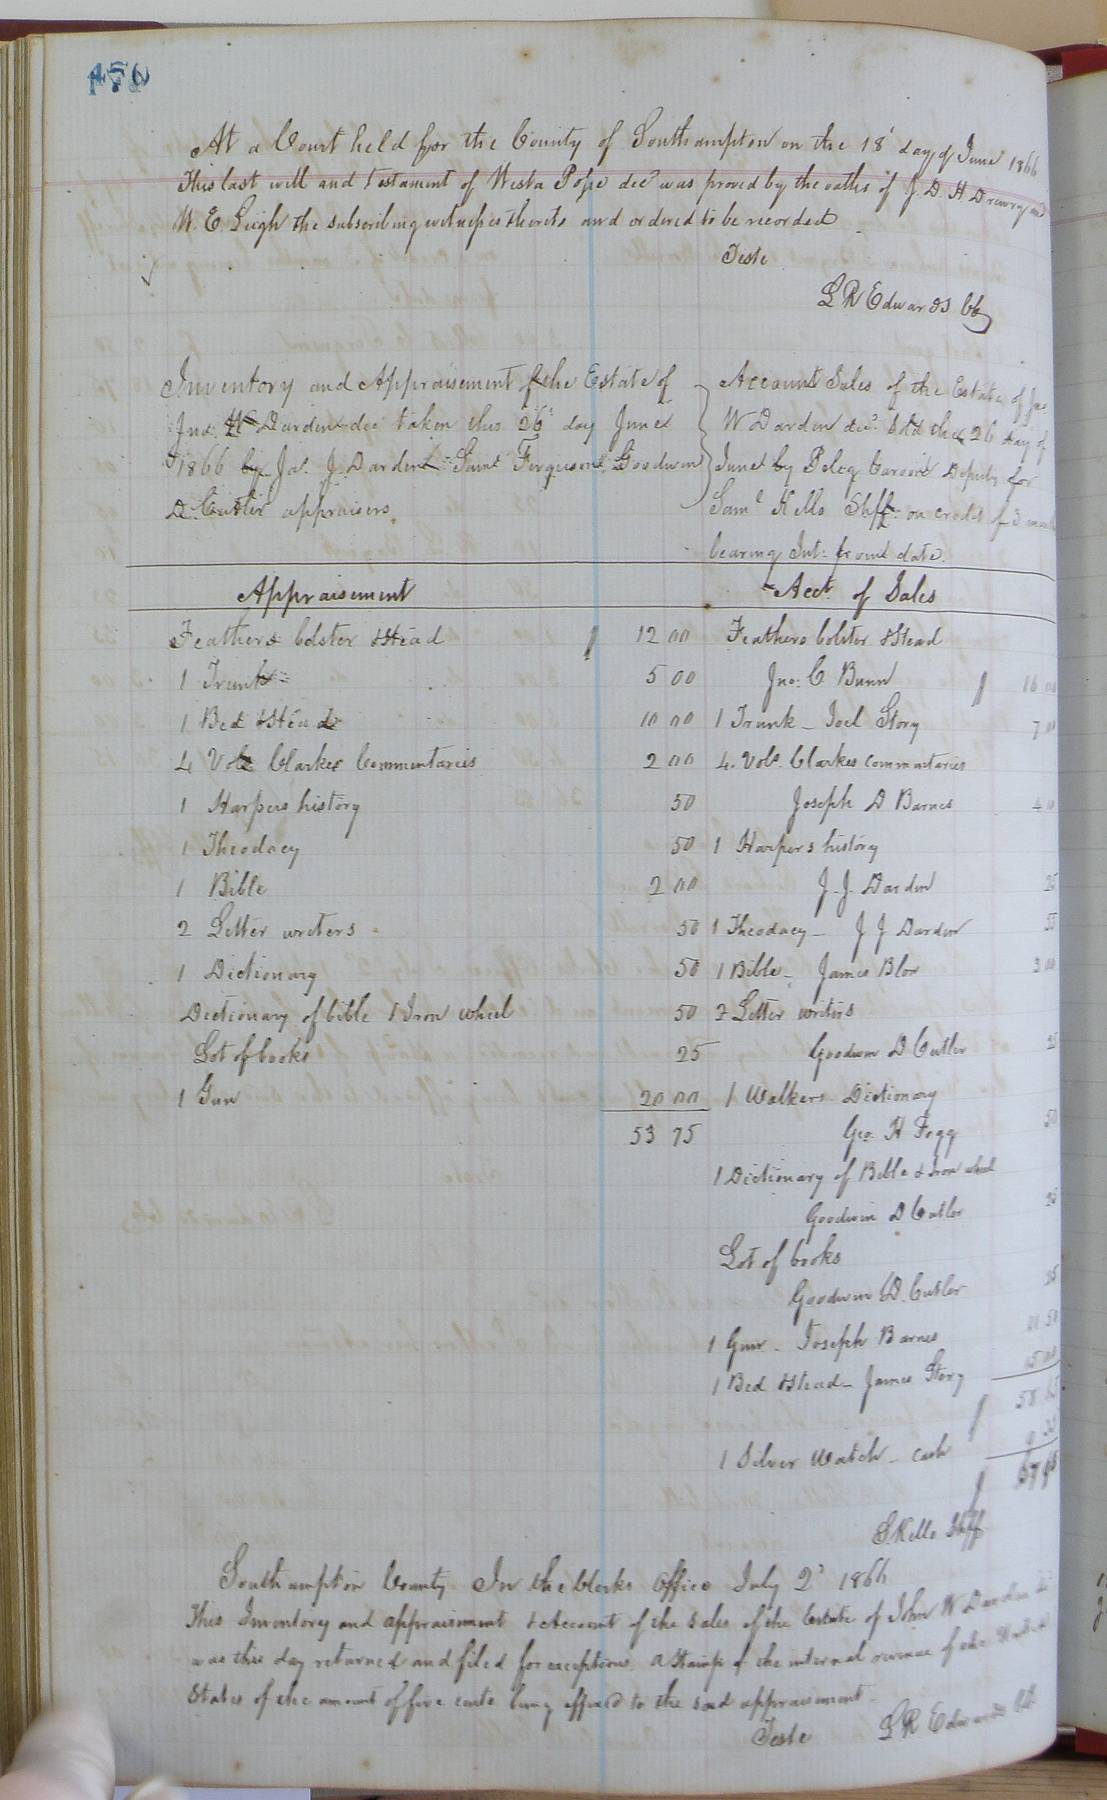 At a Court held for the County of Southampton on the 18' day of June 1866
This last will and testament of Wesla Pope decd was proved by the oaths of J. D. H Drewry and
W. E Leigh the subscribing witnesses thereto and ordered to be recorded
Teste
L R Edwards
Inventory and Appraisement of the Estate of
Jno: W Darden dec taken this 26' day June
1866 by Jas. J. Darden Saml Ferguson & Goodwin
D. Cutler appraisers
Account Sales of the Estate of Jno
W Darden decd. Sold the 26 day of
June by Deputy for
Saml Kello Shff. on credit of 3 months
bearing Int: from date.
Appraisement
Feathers bolster & Stead 12 00
1 Trunk 5 00
1 Bed & Stead 10 00
4 Vols Clarkes Commentaries 2 00
1 Harpers history 50
1 Theodocy 50
1 Bible 2 00
2 Letter writers 50
1 Dictionary 50
Dictionary of bible & Iron wheel 50
Lot of books 25
1 Gun 20 00
53 75
Acct. of Sales
Feathers bolster & Stead
Jno: C Bunn 16 00
1 Trunk - Joel Story 7 00
4. Vols. Clarkes commentaries
Joseph D Barnes 4 00
1 Harpers history
J. J. Darden 25
1 Theodocy - J J Darden
1 Bible - James Blow 3 00
2 Letter writers
Goodwin D Cutler 25
1 Walkers Dictionary
Geo. H Fogg 50
1 Dictionary of Bible & Iron wheel
Goodwin D Cutler 25
Lot of books
Goodwin D. Cutler
1 Gun - Joseph Barnes
1 Bed & Stead - James Story 15 00
1 Silver Watch - cash
S Kello Shff
Southampton County In the Clerks Office July 2' 1866
This Inventory and appraisement & Account of the sales of the Estate of John W Darden dec
was this day returned and filed for exceptions. A Stamp of the internal revenue of the United
States of the amount of five cents being affixed to the said appraisement.
Teste L R Edwards